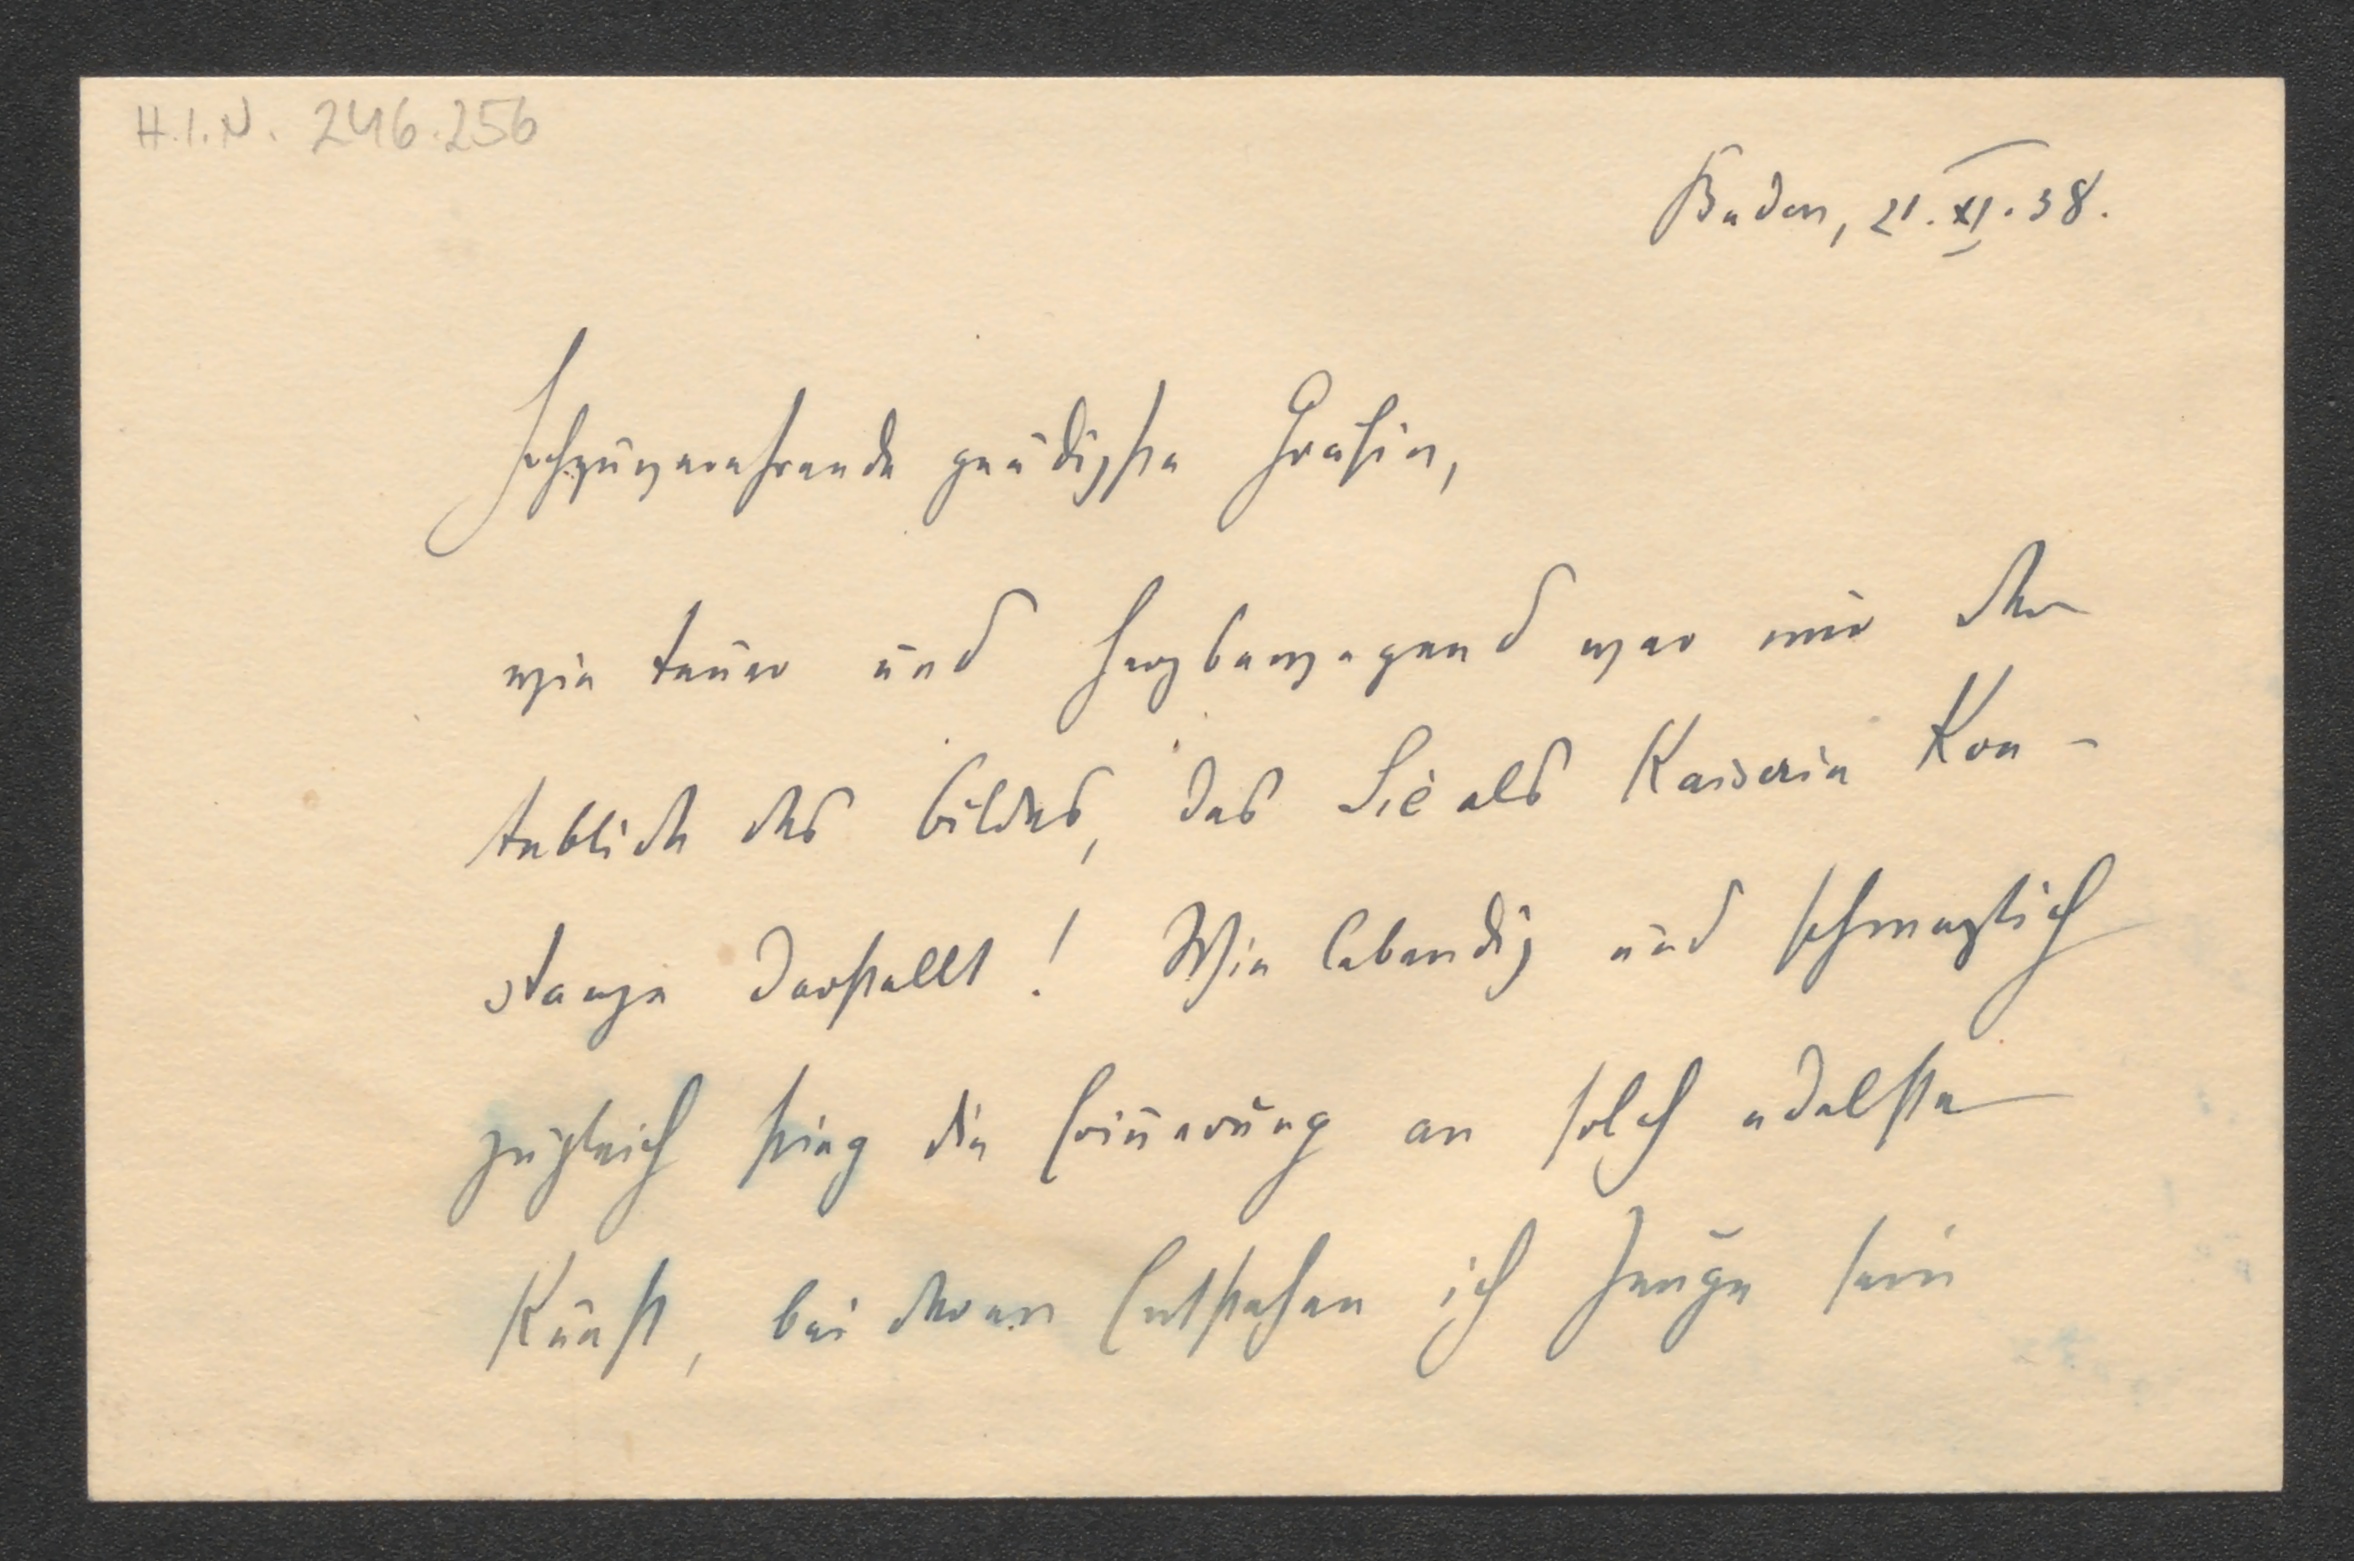 H.I.N. 246.256
Baden, 21. XI. 38.
Hochzuverehrende gnädigste Gräfin,
wie teuer und herzbewegend war mir der
Anblick des Bildes, das Sie als Kaiserin Kon-
stanze darstellt! Wie lebendig und schmerzlich
zugleich stieg die Erinnerung an solch edelste
Kunst, bei deren Entstehen ich Zeuge sein